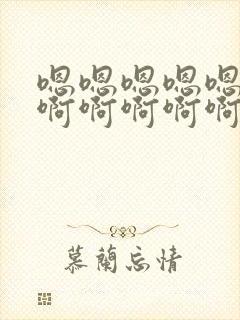 嗯嗯嗯嗯嗯
啊啊啊啊啊
慕蘭忘情